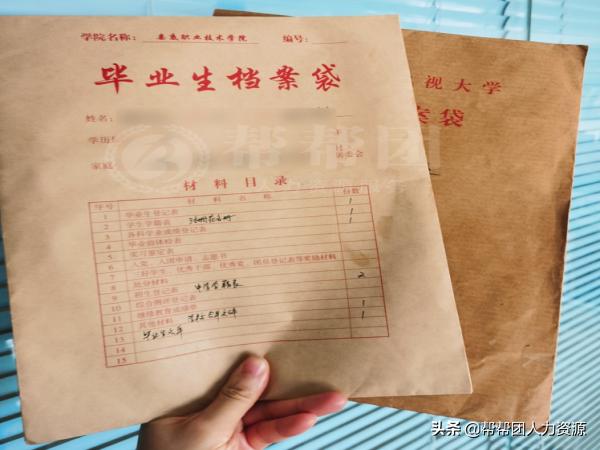 学院名称： 娄底职业技术学院 编号：
毕业生档案袋
视大学
案袋
姓名：
学历
家庭
居委会
帮帮团
材料目录
序号 材料名称 份数
1 毕业生登记表 1
2 学生学籍表 1
3 各科学业成绩登记表
4 毕业前体检表
5 实习鉴定表
6 入党、入团申请、志愿书
7 三好学生、优秀干部、优秀党、团员登记表等奖励材料
8 处分材料 2
9 招生登记表 中学学籍表
10 综合测评登记表
11 继续教育成绩单 1
12 其他材料 1
13 毕业生文本
14
15
头条 @帮帮团人力资源